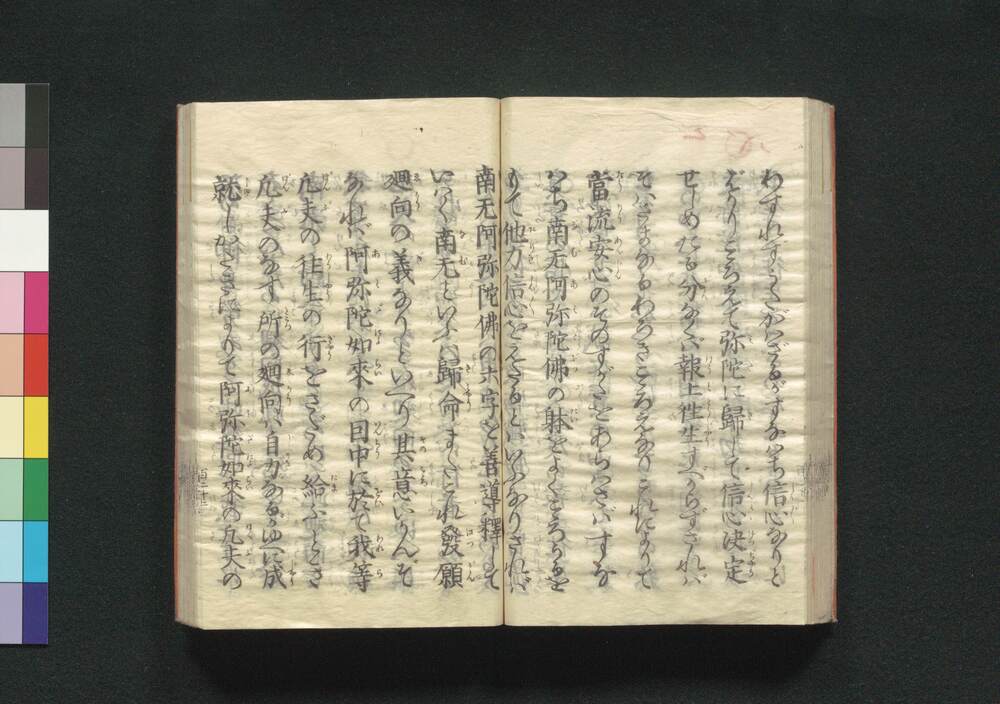 わすれずうたがはざるがすなはち信心なりと
ばかりこゝろえて弥陀に歸して信心决定
せしめたる分なくは報土徃生すべからずされば
そはさまなるわろきこゝろえなりこれによりて
當流安心のそのすがたをあらはさばすな
はち南无阿弥陀佛の躰をよくこゝろうるを
もて他力信心をえたるとはいふなりされば
南无阿弥陀佛の六字を善導釋して
いはく南无といふは歸命またこれ發願
廻向の義なりといへり其意いかんぞ
なれば阿弥陀如來の因中に於て我等
凢夫の徃生の行をさだめ給ふとき
凢夫のなす所の廻向は自力なるがゆへに成
就しがたきによりて阿弥陀如來の凢夫の